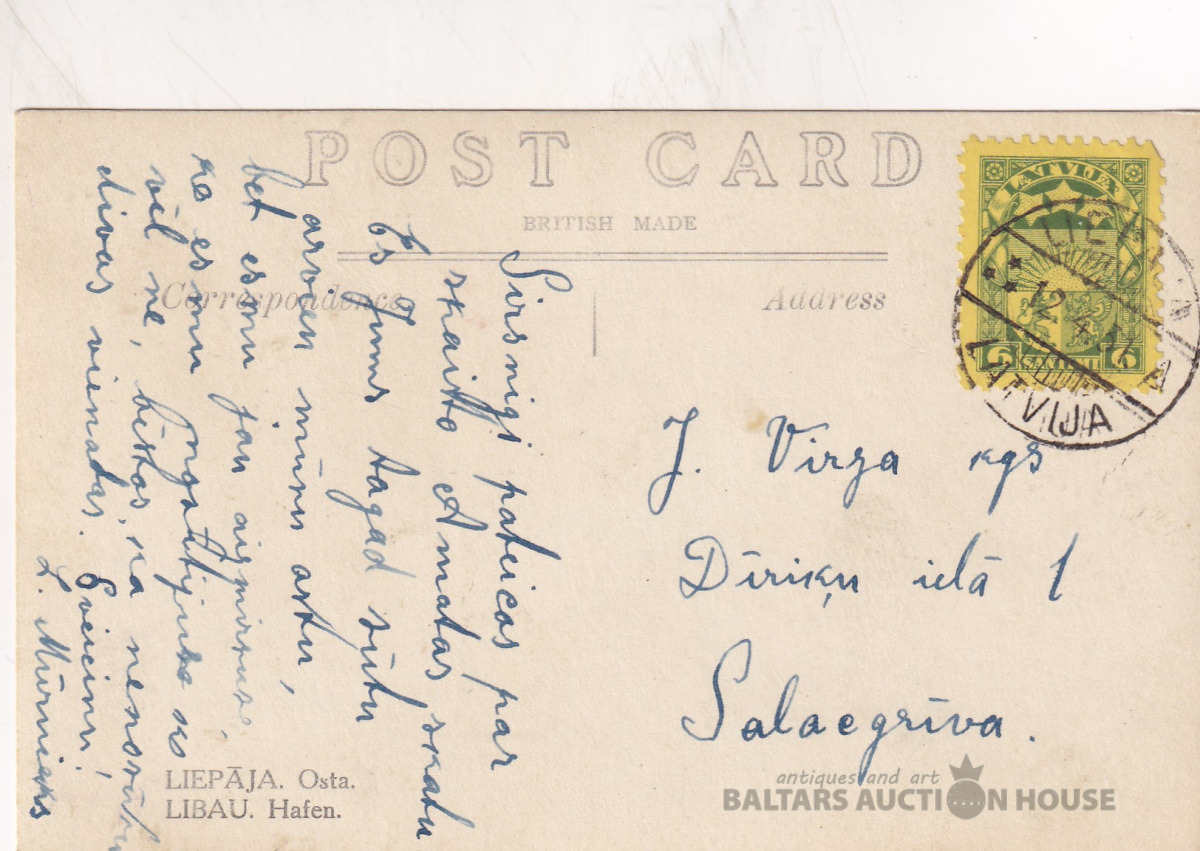 POST CARD
BRITISH MADE
Correspondence
Address
LATVIJA
6 SANTIMI 6
LATVIJA
Sirsnigi pateicos par
skaisto Amatas skatu
Es Jums tagad sūtu
arvien mūsu ostu,
bet esmu jau aizmirsuse,
ko esmu
vil ne, bistos, ka nenosūtu
divas vienadas.
Sveicinu,
L. Mūrnieks
J. Virza kgs
Dīriķu ielā 1
Salacgrīva.
LIEPĀJA. Osta.
LIBAU. Hafen.
antiques and art
BALTARS AUCTION HOUSE